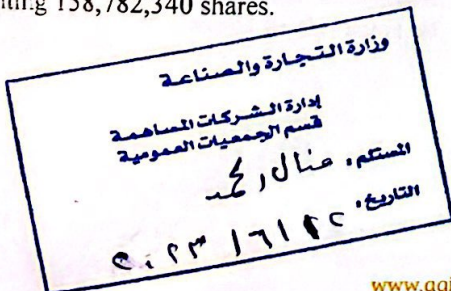 158,782,340 shares.
وزارة التجارة والصناعة
إدارة الشركات المساهمة
قسم الجمعيات العمومية
المستلم، منال
التاريخ،
www.